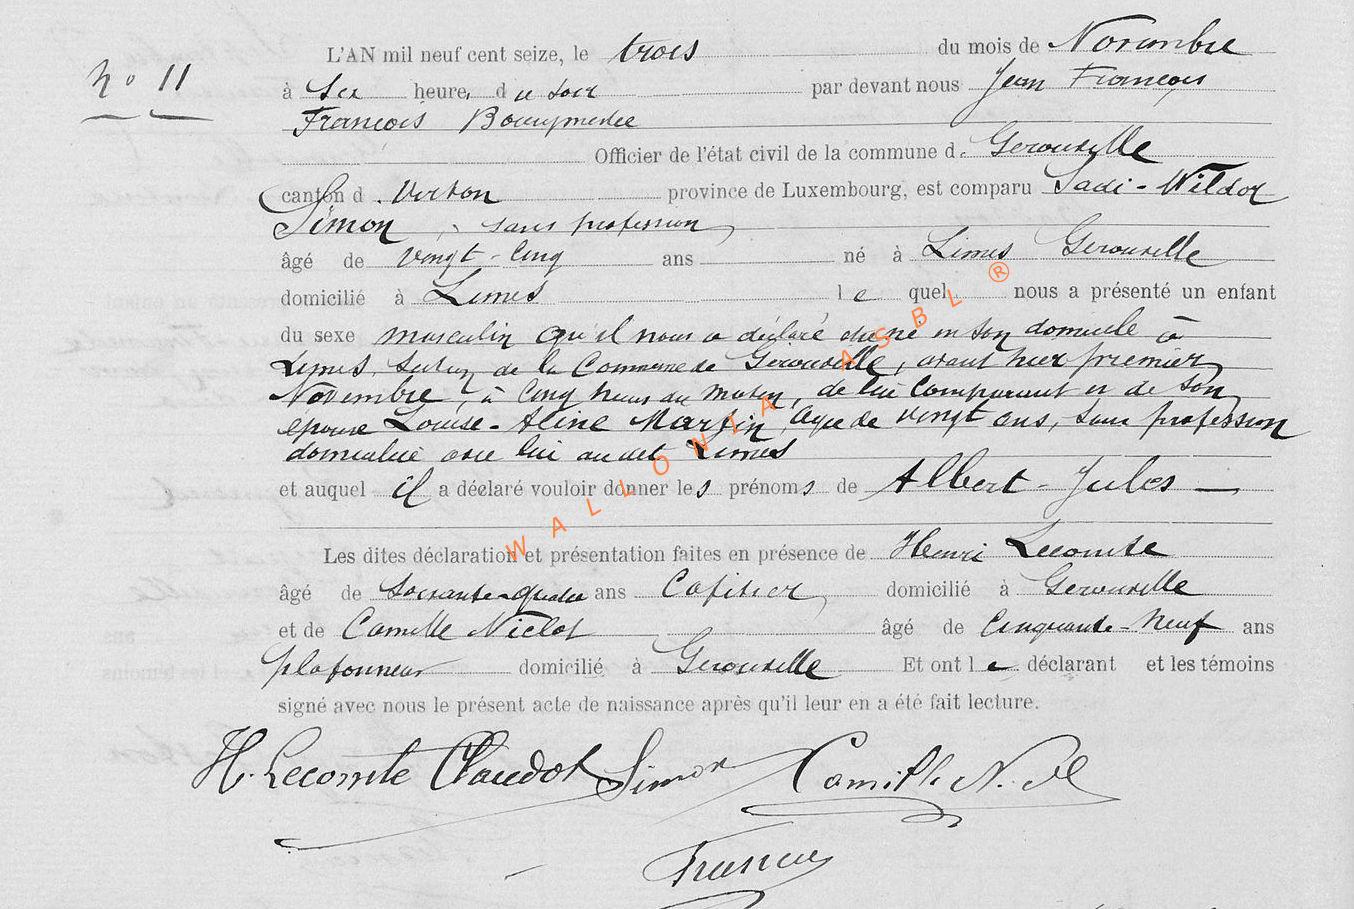 L'AN mil neuf cent seize, le trois du mois de Novembre
N° 11
à six heures du soir par devant nous Jean François
François Bourgmestre
Officier de l'état civil de la commune de Gerouville
canton d. Virton province de Luxembourg, est comparu Sadi-Wildor
Simon, sans profession
âgé de vingt-cinq ans né à Limes Gerouville
domicilié à Limes lequel nous a présenté un enfant
du sexe masculin qu'il nous a déclaré être né en son domicile à
Limes, section de la Commune de Gérouville, avant hier premier
Novembre, à cinq heures du matin, de lui comparant et de son
épouse Louise-Aline Martin, âgée de vingt ans, sans profession
domiciliée avec lui audit Limes
et auquel il a déclaré vouloir donner les prénoms de Albert-Jules —
Les dites déclaration et présentation faites en présence de Henri Lecomte
âgé de soixante-quatre ans domicilié à Gerouville
et de Camille Niclot âgé de cinquante-neuf ans
plafonneur domicilié à Gerouville Et ont le déclarant et les témoins
signé avec nous le présent acte de naissance après qu'il leur en a été fait lecture.
H. Lecomte Claudot Simon Camille Niclot
François
WALLONIA ASBL ®